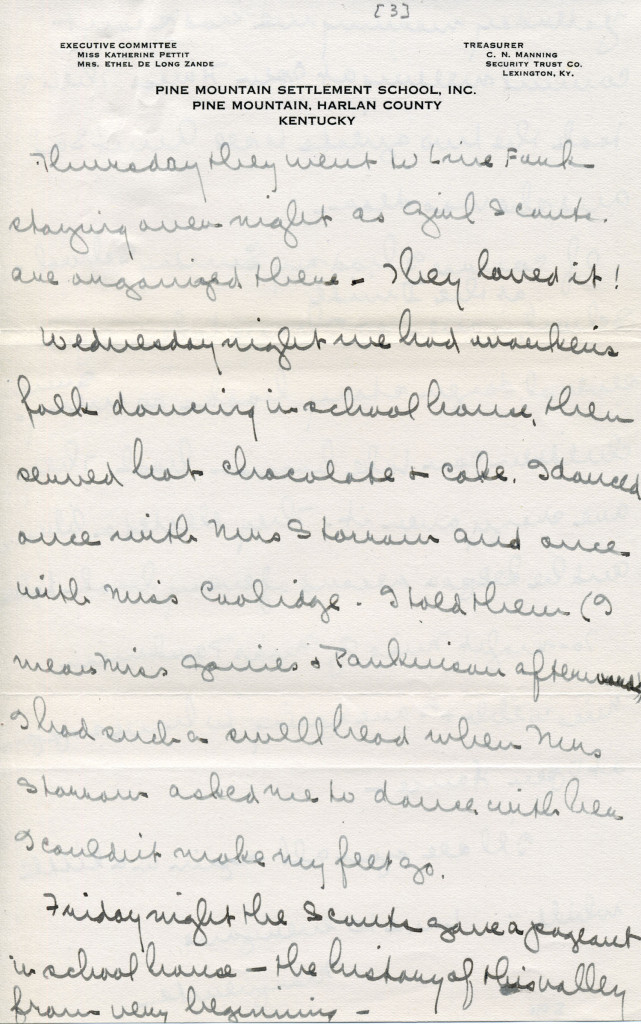 [3]
EXECUTIVE COMMITTEE
MISS KATHERINE PETTIT
MRS. ETHEL DE LONG ZANDE
TREASURER
C. N. MANNING
SECURITY TRUST CO.
LEXINGTON, KY.
PINE MOUNTAIN SETTLEMENT SCHOOL, INC.
PINE MOUNTAIN, HARLAN COUNTY
KENTUCKY
Thursday they went to Line Fork
staying over night as Girl Scouts.
are organized there - They loved it!
Wednesday night we had worker's
folk dancing in school house, then
served hot chocolate & cake. I danced
once with Mrs Storrow and once
with Miss Coolidge. I told them (I
mean Miss Gaines & Parkinson afterwards)
I had such a swell head when Mrs
Storrow asked me to dance with her
I couldn't make my feet go.
Friday night the Scouts gave a pageant
in school house - the history of this valley
from very beginning -